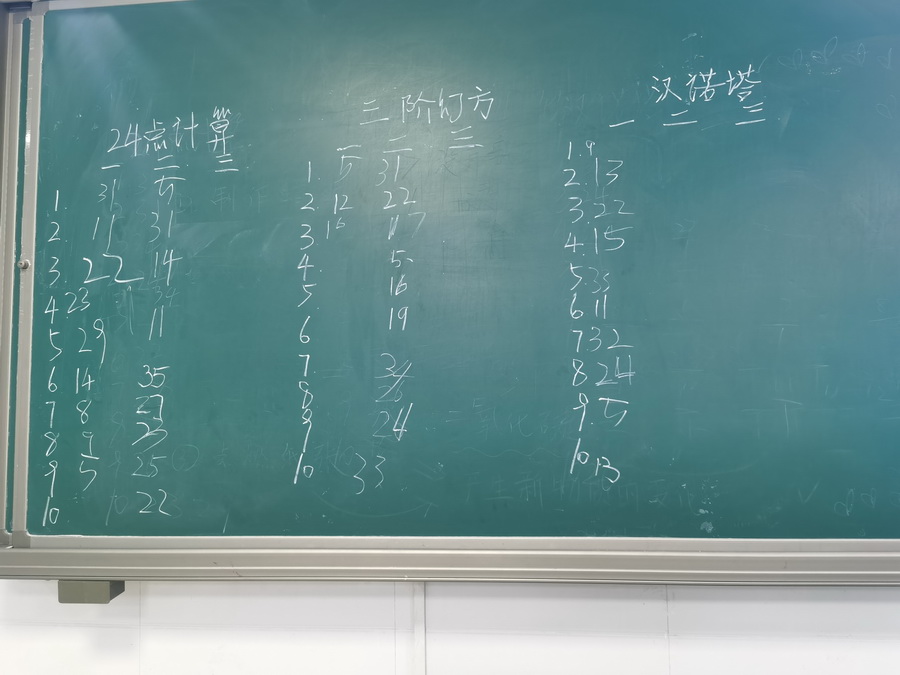 24点计算
一 二 三
1. 31 5
2. 11 31
3. 22 14
4. 23
5 29 11
6 14 35
7 8
8 9
9 5 25
10 22
三阶幻方
一 二 三
1. 5 31
2. 12 22
3. 16 17
4. 5
5 16
6 19
7.
8
9 24
10 33
汉诺塔
一 二 三
1. 9
2. 13
3. 22
4. 15
5. 35
6 11
7 32
8 24
9. 5
10 13